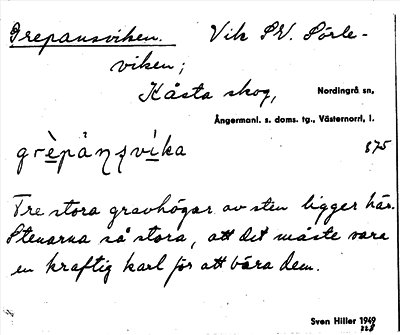 Grepansviken. Vik SV. Sörle-
viken;
Kåsta skog, Nordingrå sn,
Ångermanl. s. doms. tg., Västernorrl, l.
grèpånsvìka 875
Tre stora gravhögar av sten ligger här.
Stenarna så stora, att det måste vara
en kraftig karl för att bära dem.
Sven Hiller 1949